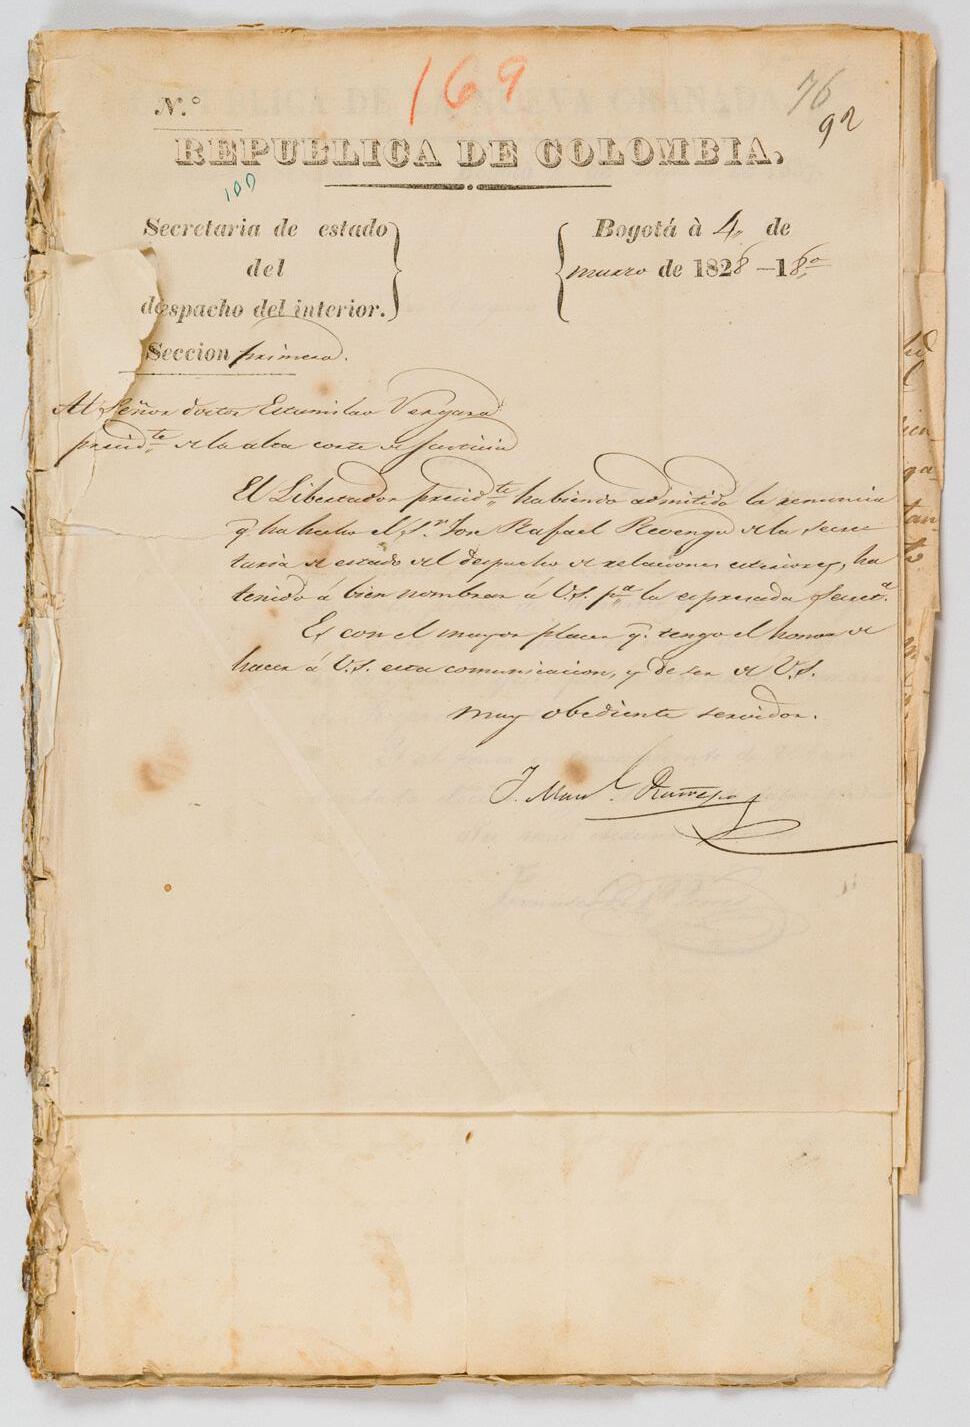 169
76
92
N.º
REPUBLICA DE COLOMBIA.
100
Secretaria de estado
del
despacho del interior.
Seccion primera.
Bogotá à 4, de
marzo de 1828–18º
Al Señor doctor Estanislao Vergara
presidte de la alta corte de Justicia
El Libertador presidte habiendo admitido la renuncia
q ha hecho el Sr. José Rafael Revenga de la secre
taria de estado del despacho de relaciones esteriores, ha
tenido á bien nombrar á V.S. pa la espresada Secreta.
Es con el mayor placer q. tengo el honor de
hacer á V.S. esta comunicacion, y de ser de V.S.
muy obediente servidor.
J. Manl. Restrepo